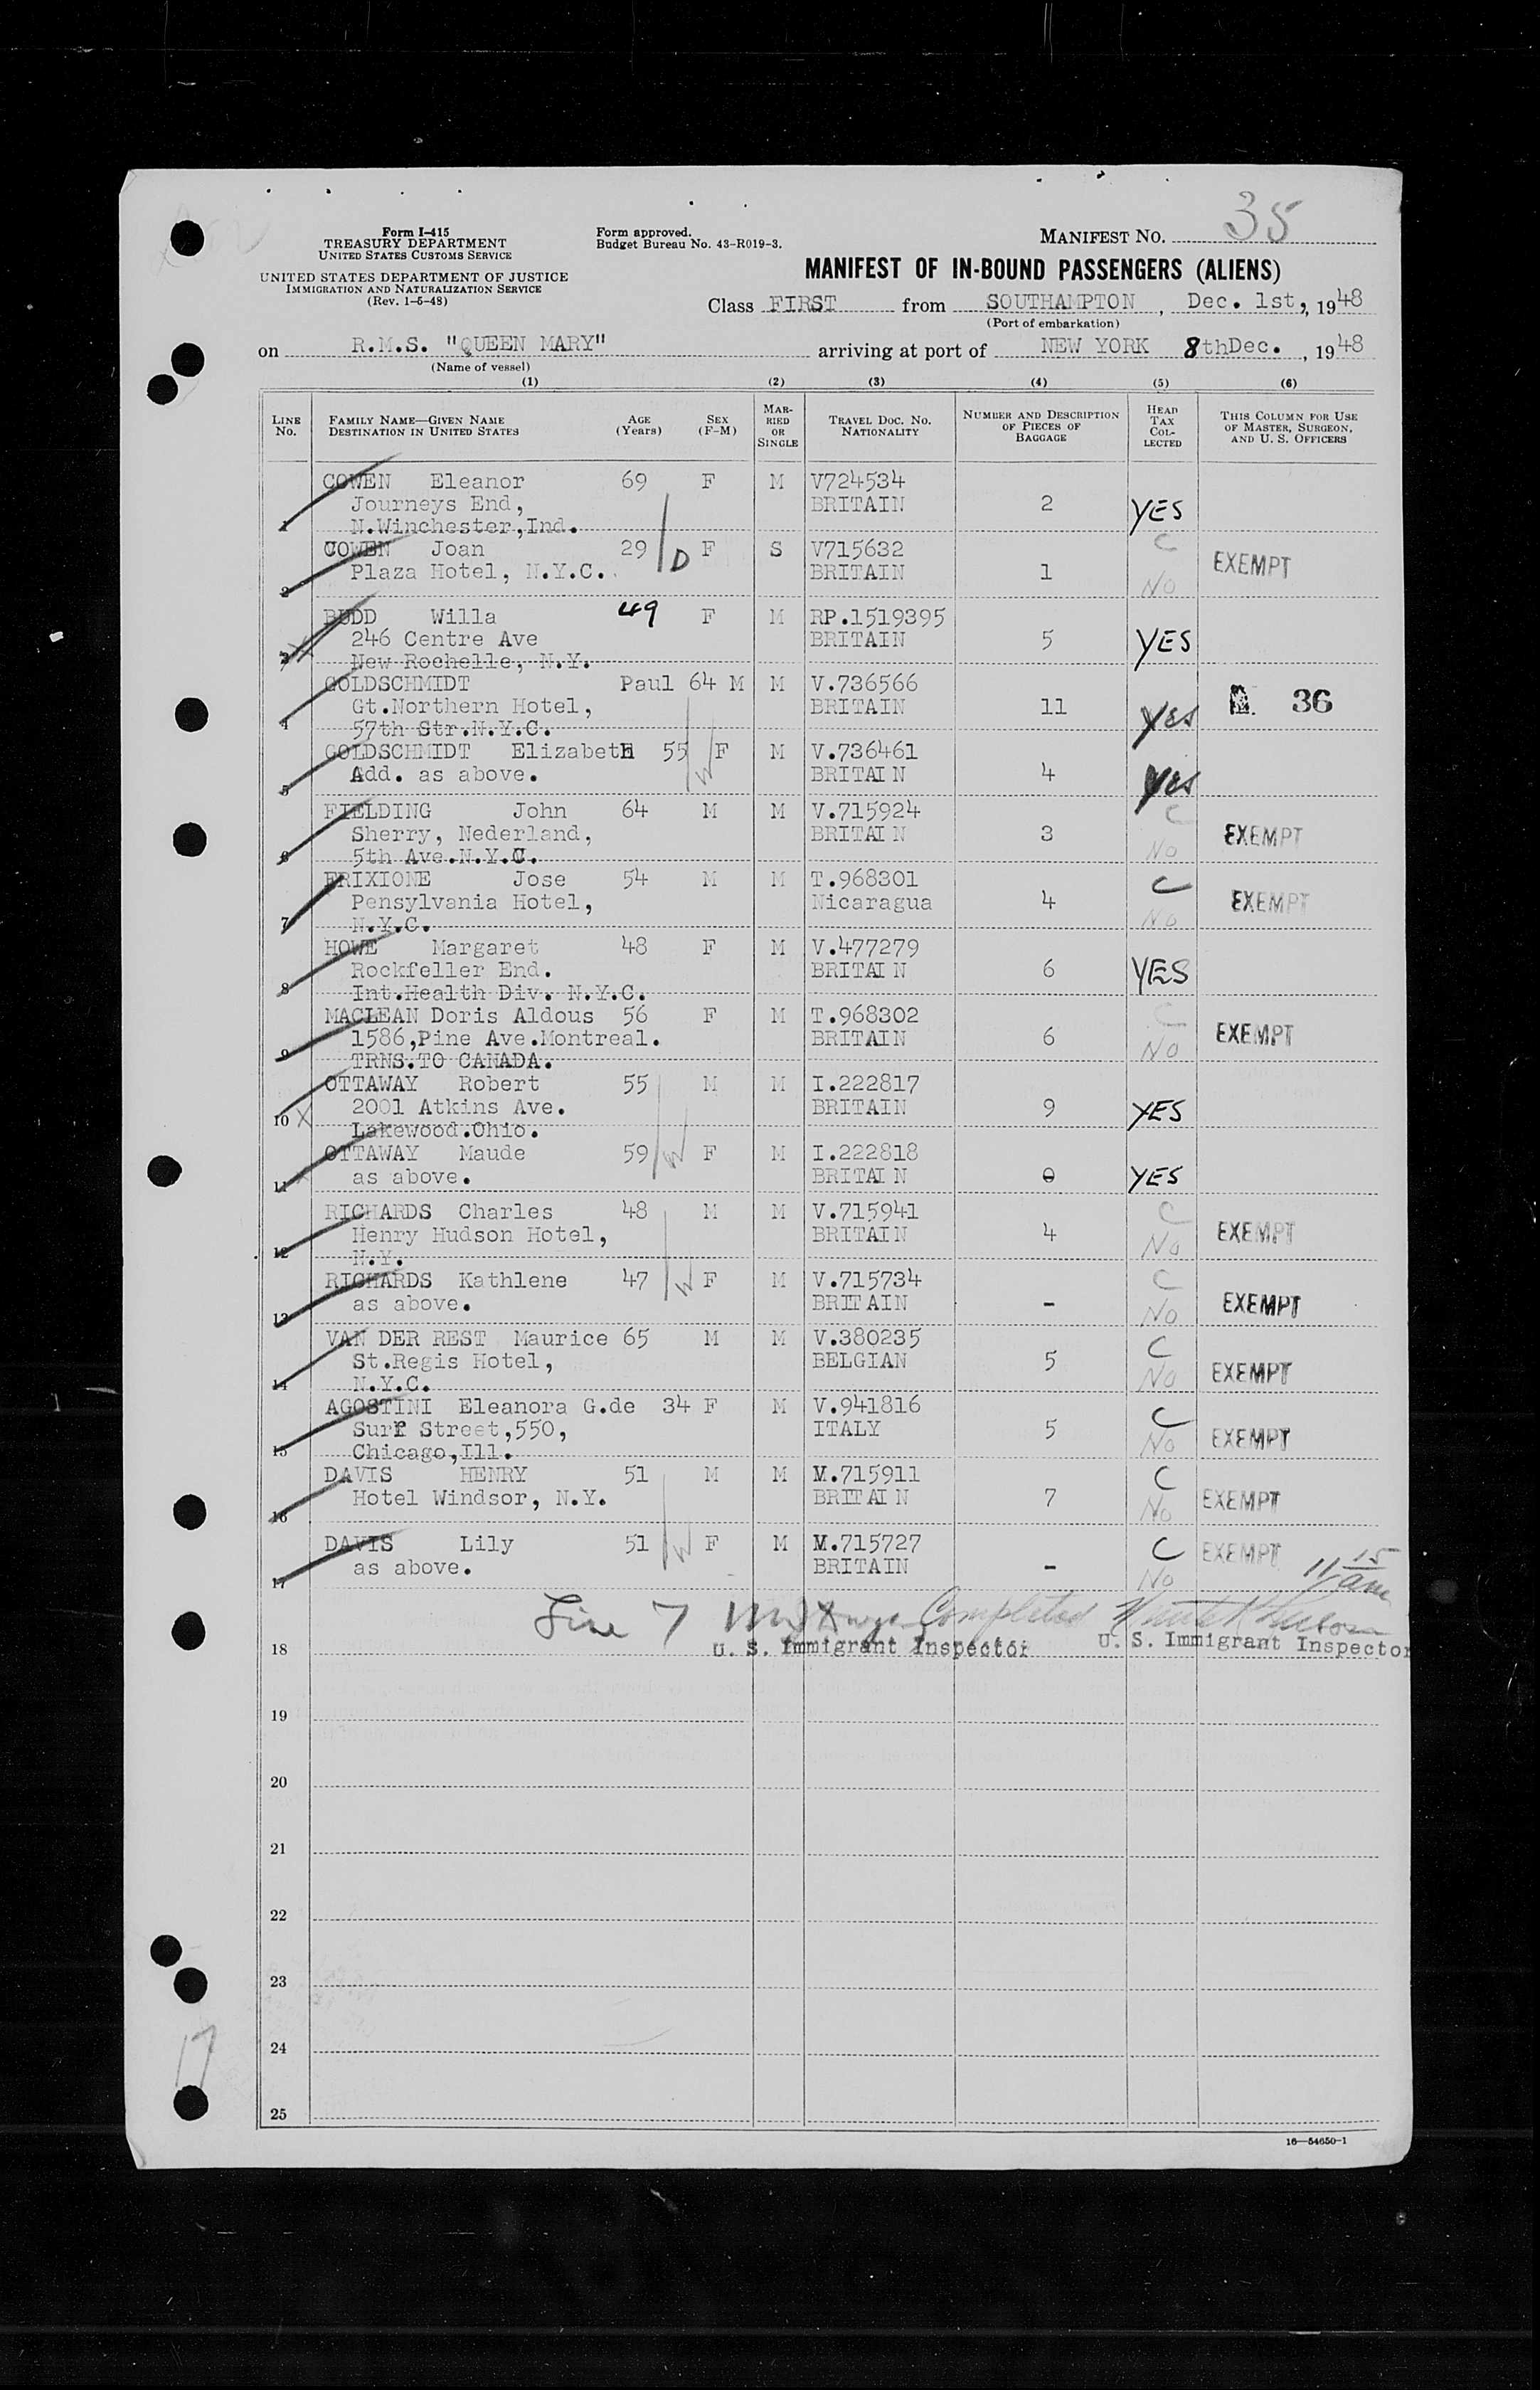 35
Form I-415
TREASURY DEPARTMENT
UNITED STATES CUSTOMS SERVICE
UNITED STATES DEPARTMENT OF JUSTICE
IMMIGRATION AND NATURALIZATION SERVICE
(Rev. 1-5-48)
Form approved.
Budget Bureau No. 43-R019-3.
MANIFEST NO.
MANIFEST OF IN-BOUND PASSENGERS (ALIENS)
Class FIRST from SOUTHAMPTON, Dec. 1st, 1948
(Port of embarkation)
on R.M.S. "QUEEN MARY" arriving at port of NEW YORK 8thDec., 1948
(Name of vessel)
(1) (2) (3) (4) (5) (6)
LINE No. FAMILY NAME—GIVEN NAME DESTINATION IN UNITED STATES AGE (Years) SEX (F-M) MARRIED OR SINGLE TRAVEL DOC. NO. NATIONALITY NUMBER AND DESCRIPTION OF PIECES OF BAGGAGE HEAD TAX COLLECTED THIS COLUMN FOR USE OF MASTER, SURGEON, AND U. S. OFFICERS
COWEN Eleanor 69 F M V724534
Journeys End, BRITAIN 2 YES
1 N.Winchester,Ind.
COWEN Joan 29 D F S V715632 C
Plaza Hotel, N.Y.C. BRITAIN 1 No EXEMPT
2
BUDD Willa 49 F M RP.1519395
246 Centre Ave BRITAIN 5 YES
3 New Rochelle, N.Y.
GOLDSCHMIDT Paul 64 M M V.736566
Gt.Northern Hotel, BRITAIN 11 Yes 36
4 57th Str.N.Y.C.
GOLDSCHMIDT Elizabeth 55 W F M V.736461
Add. as above. BRITAIN 4 Yes
5
FIELDING John 64 M M V.715924 C
Sherry, Nederland, BRITAIN 3 No EXEMPT
6 5th Ave.N.Y.C.
FRIXIONE Jose 54 M M T.968301 C
Pensylvania Hotel, Nicaragua 4 No EXEMPT
7 N.Y.C.
HOWE Margaret 48 F M V.477279
Rockfeller End. BRITAIN 6 YES
8 Int.Health Div. N.Y.C.
MACLEAN Doris Aldous 56 F M T.968302 C
1586,Pine Ave.Montreal. BRITAIN 6 No EXEMPT
9 TRNS.TO CANADA.
OTTAWAY Robert 55 M M I.222817
10 X 2001 Atkins Ave. BRITAIN 9 YES
Lakewood.Ohio.
OTTAWAY Maude 59 W F M I.222818
11 as above. BRITAIN 0 YES
RICHARDS Charles 48 M M V.715941 C
Henry Hudson Hotel, BRITAIN 4 No EXEMPT
12 N.Y.
RICHARDS Kathlene 47 W F M V.715734 C
as above. BRITAIN - No EXEMPT
13
VAN DER REST Maurice 65 M M V.380235 C
St.Regis Hotel, BELGIAN 5 No EXEMPT
14 N.Y.C.
AGOSTINI Eleanora G.de 34 F M V.941816 C
Surf Street,550, ITALY 5 No EXEMPT
15 Chicago,Ill.
DAVIS HENRY 51 M M M.715911 C
Hotel Windsor, N.Y. BRITAIN 7 No EXEMPT
16
DAVIS Lily 51 W F M M.715727 C EXEMPT
as above. BRITAIN - No 11 15 am
17
Line 7 Completed
18 U. S. Immigrant Inspector U. S. Immigrant Inspector
19
20
21
22
23
24
25
17
16—54650-1